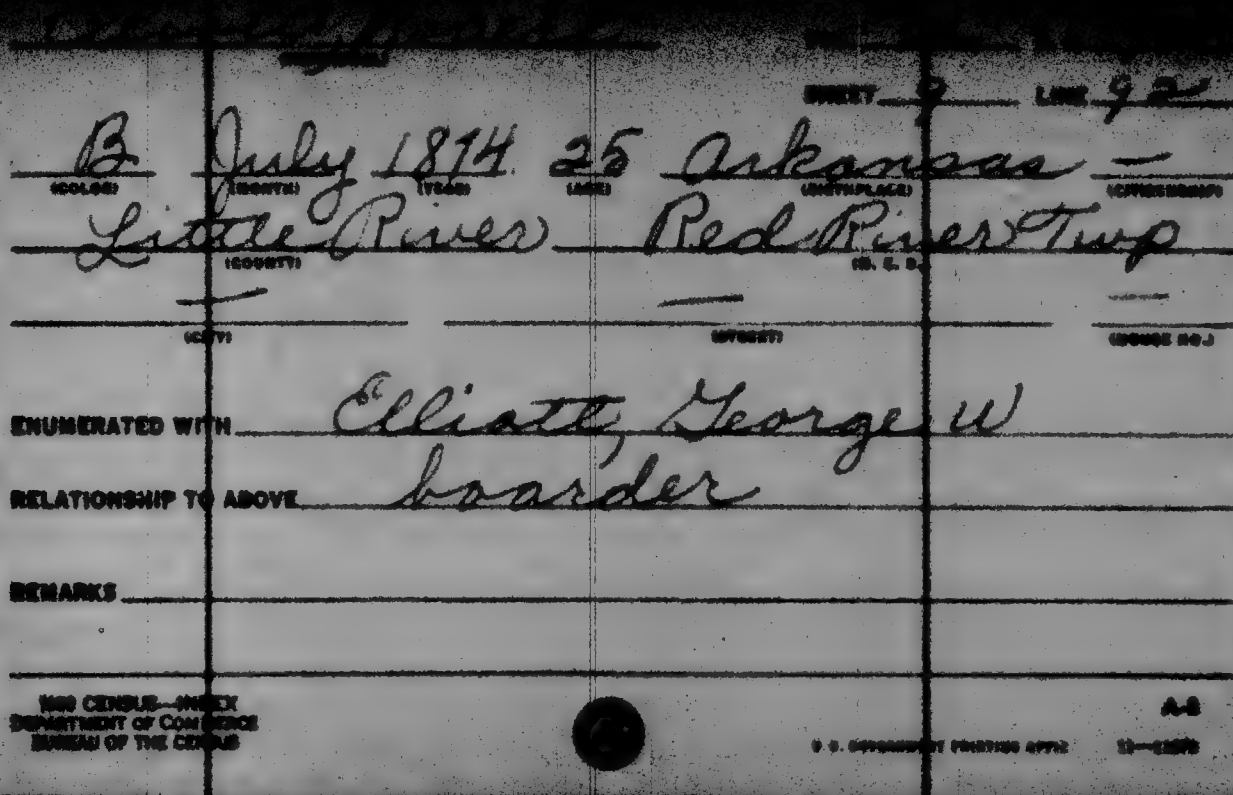 SHEET 9 LINE 92
B July 1874 25 Arkansas —
(COLOR) (MONTH) (YEAR) (AGE) (BIRTHPLACE) (CITIZENSHIP)
Little River Red River Twp
(COUNTY) (M. C. D.)
— — —
(CITY) (STREET) (HOUSE NO.)
ENUMERATED WITH Elliott, George W
RELATIONSHIP TO ABOVE boarder
REMARKS
1900 CENSUS—INDEX
DEPARTMENT OF COMMERCE
BUREAU OF THE CENSUS
A-2
U.S. GOVERNMENT PRINTING OFFICE